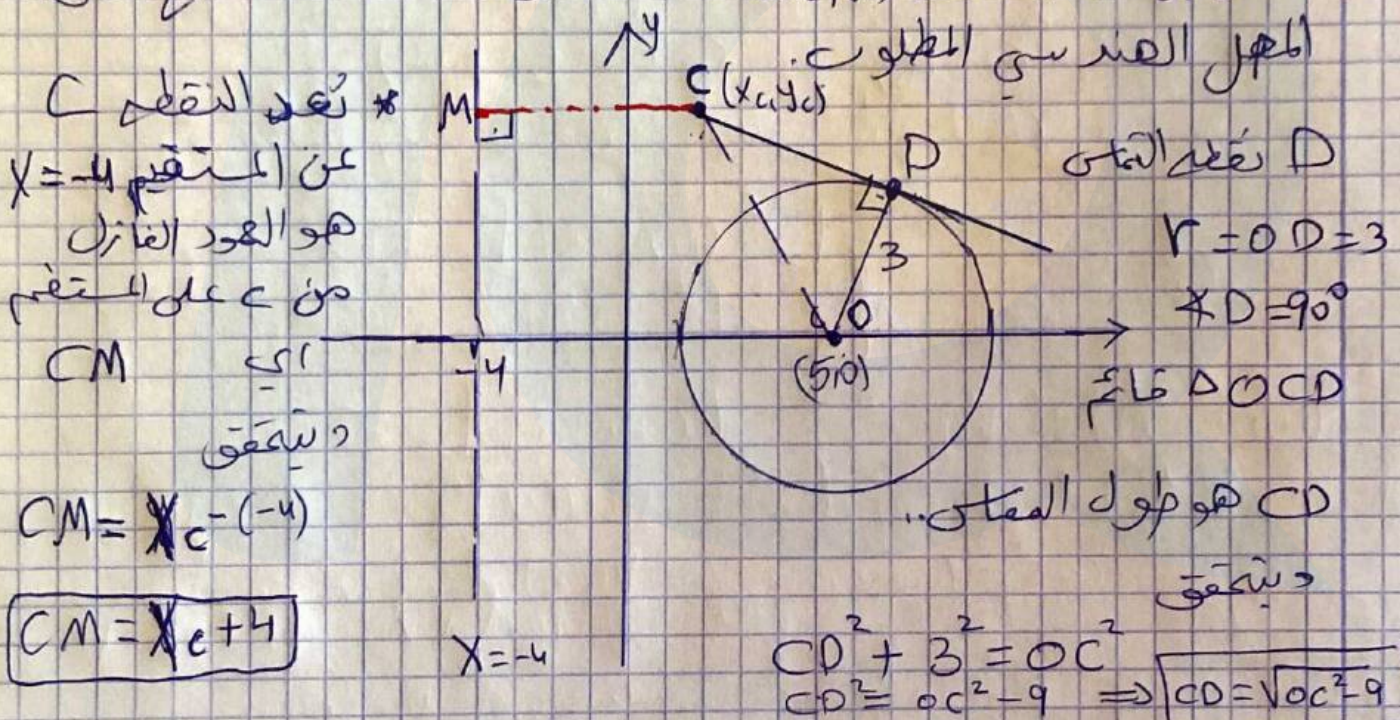 المحل الهندسي المطلوب.
y
C (Xc, Yc)
M
D
3
O
(5,0)
-4
X=-4
D نقطة التماس
r = OD = 3
∢D = 90°
△OCD قائم
CD هو طول المماس..
ويتحقق
CD² + 3² = OC²
CD² = OC² - 9 ⇒ CD = √OC²-9
* بُعد النقطة C
عن المستقيم X=-4
هو العمود النازل
من C على المستقيم
اي CM
ويتحقق
CM = Xc -(-4)
CM = Xc + 4